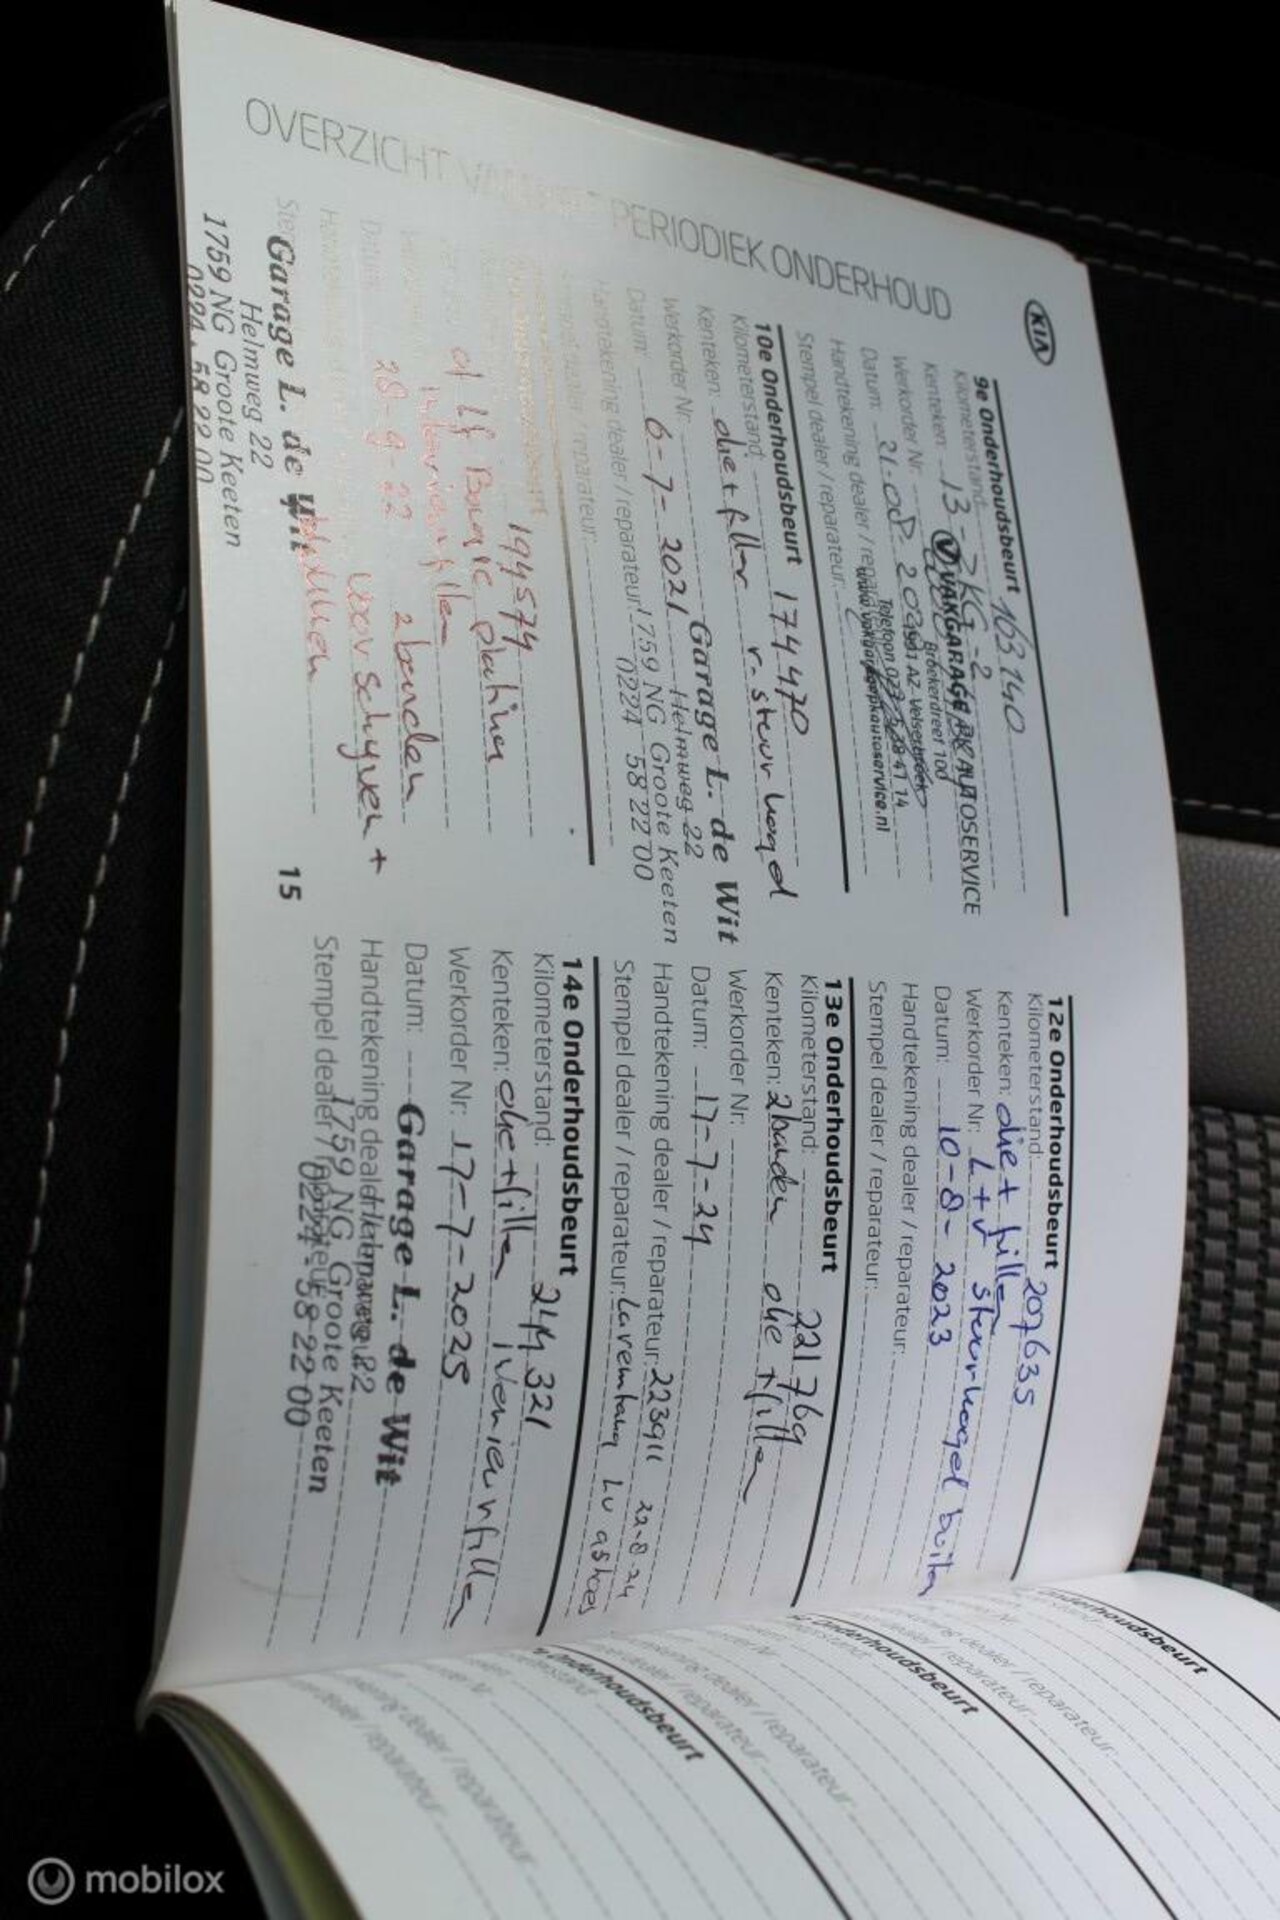 KIA
OVERZICHT VAN HET PERIODIEK ONDERHOUD
9e Onderhoudsbeurt
Kilometerstand: 163140
Kenteken: 13-ZKG-2
Werkorder Nr:
Datum: 21-08 20
Handtekening dealer / reparateur:
Stempel dealer / reparateur:
VAKGARAGE PK AUTOSERVICE
Broekerdreef 100
AZ Velserbroek
Telefoon 023 - 5 38 41 14
www.vakgaragepkautoservice.nl
10e Onderhoudsbeurt
Kilometerstand: 174470
Kenteken: olie + filter v. stuurkogel
Werkorder Nr:
Datum: 6-7-2021
Handtekening dealer / reparateur:
Stempel dealer / reparateur:
Garage L. de Wit
Helmweg 22
1759 NG Groote Keeten
0224 58 22 00
194574
Datum:
28-9-22 2 banden
voor schyven +
Garage L. de Wit
Helmweg 22
1759 NG Groote Keeten
0224 - 58 22 00
15
12e Onderhoudsbeurt
Kilometerstand: 207635
Kenteken: olie + filter
Werkorder Nr: L + V stuurkogel buiten
Datum: 10-8-2023
Handtekening dealer / reparateur:
Stempel dealer / reparateur:
13e Onderhoudsbeurt
Kilometerstand: 221769
Kenteken: 2 banden olie + filter
Werkorder Nr:
Datum: 17-7-24
Handtekening dealer / reparateur: 223911 22-8-24
Stempel dealer / reparateur: LV
14e Onderhoudsbeurt
Kilometerstand: 244321
Kenteken: olie + filter interieurfilter
Werkorder Nr: 17-7-2025
Datum:
Handtekening dealer / reparateur:
Stempel dealer / reparateur:
Garage L. de Wit
Helmweg 22
1759 NG Groote Keeten
0224 - 58 22 00
Onderhoudsbeurt
dealer / reparateur:
Onderhoudsbeurt
dealer / reparateur:
Onderhoudsbeurt
dealer / reparateur:
mobilox